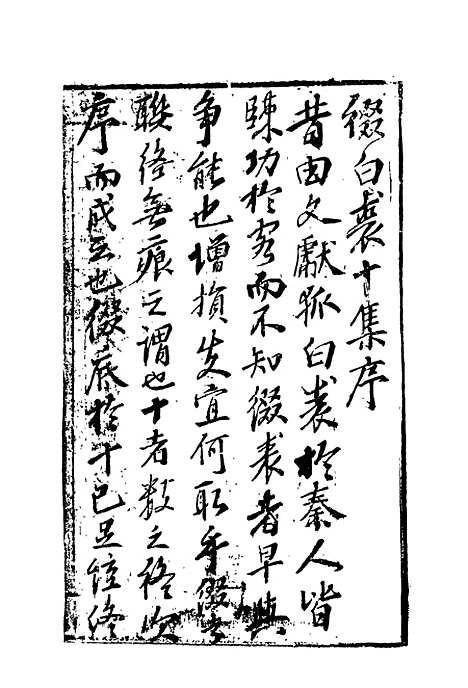 綴白裘十集序
昔田文獻狐白裘於秦人皆
陳功於客而不知綴裘者早與
爭能也增損失宜何取乎綴者
聯絡無痕之謂也十者數之終次
序而成之也綴底於十已足